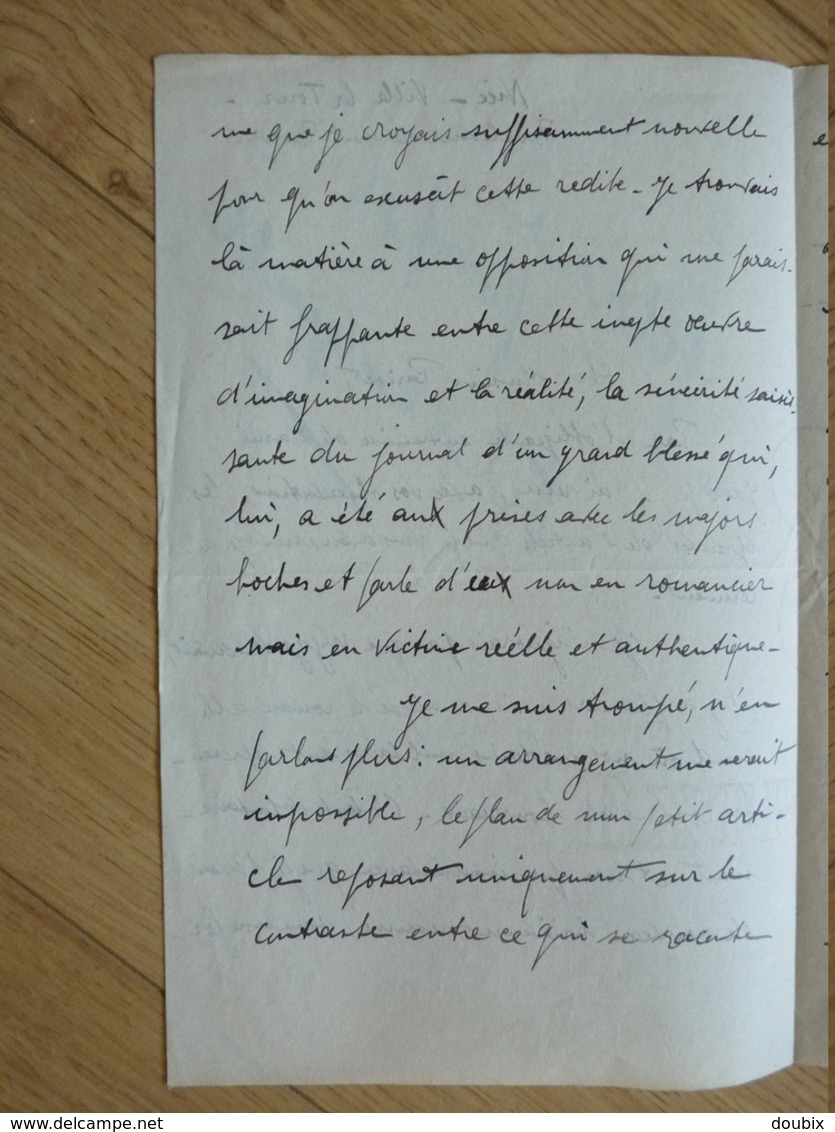 me que je croyais suffisamment nouvelle
pour qu'on excusât cette redite - Je trouvais
là matière à une opposition qui me parais-
sait frappante entre cette inepte œuvre
d'imagination et la réalité, la sincérité saisis-
sante du journal d'un grand blessé qui,
lui, a été aux prises avec les majors
boches et parle d'eux non en romancier
mais en victime réélle et authentique -
Je me suis trompé, n'en
parlons plus : un arrangement me serait
impossible, le plan de mon petit arti-
cle reposant uniquement sur le
contraste entre ce qui se raconte
Nice - Villa la Tour -
delcampe.net
doubix